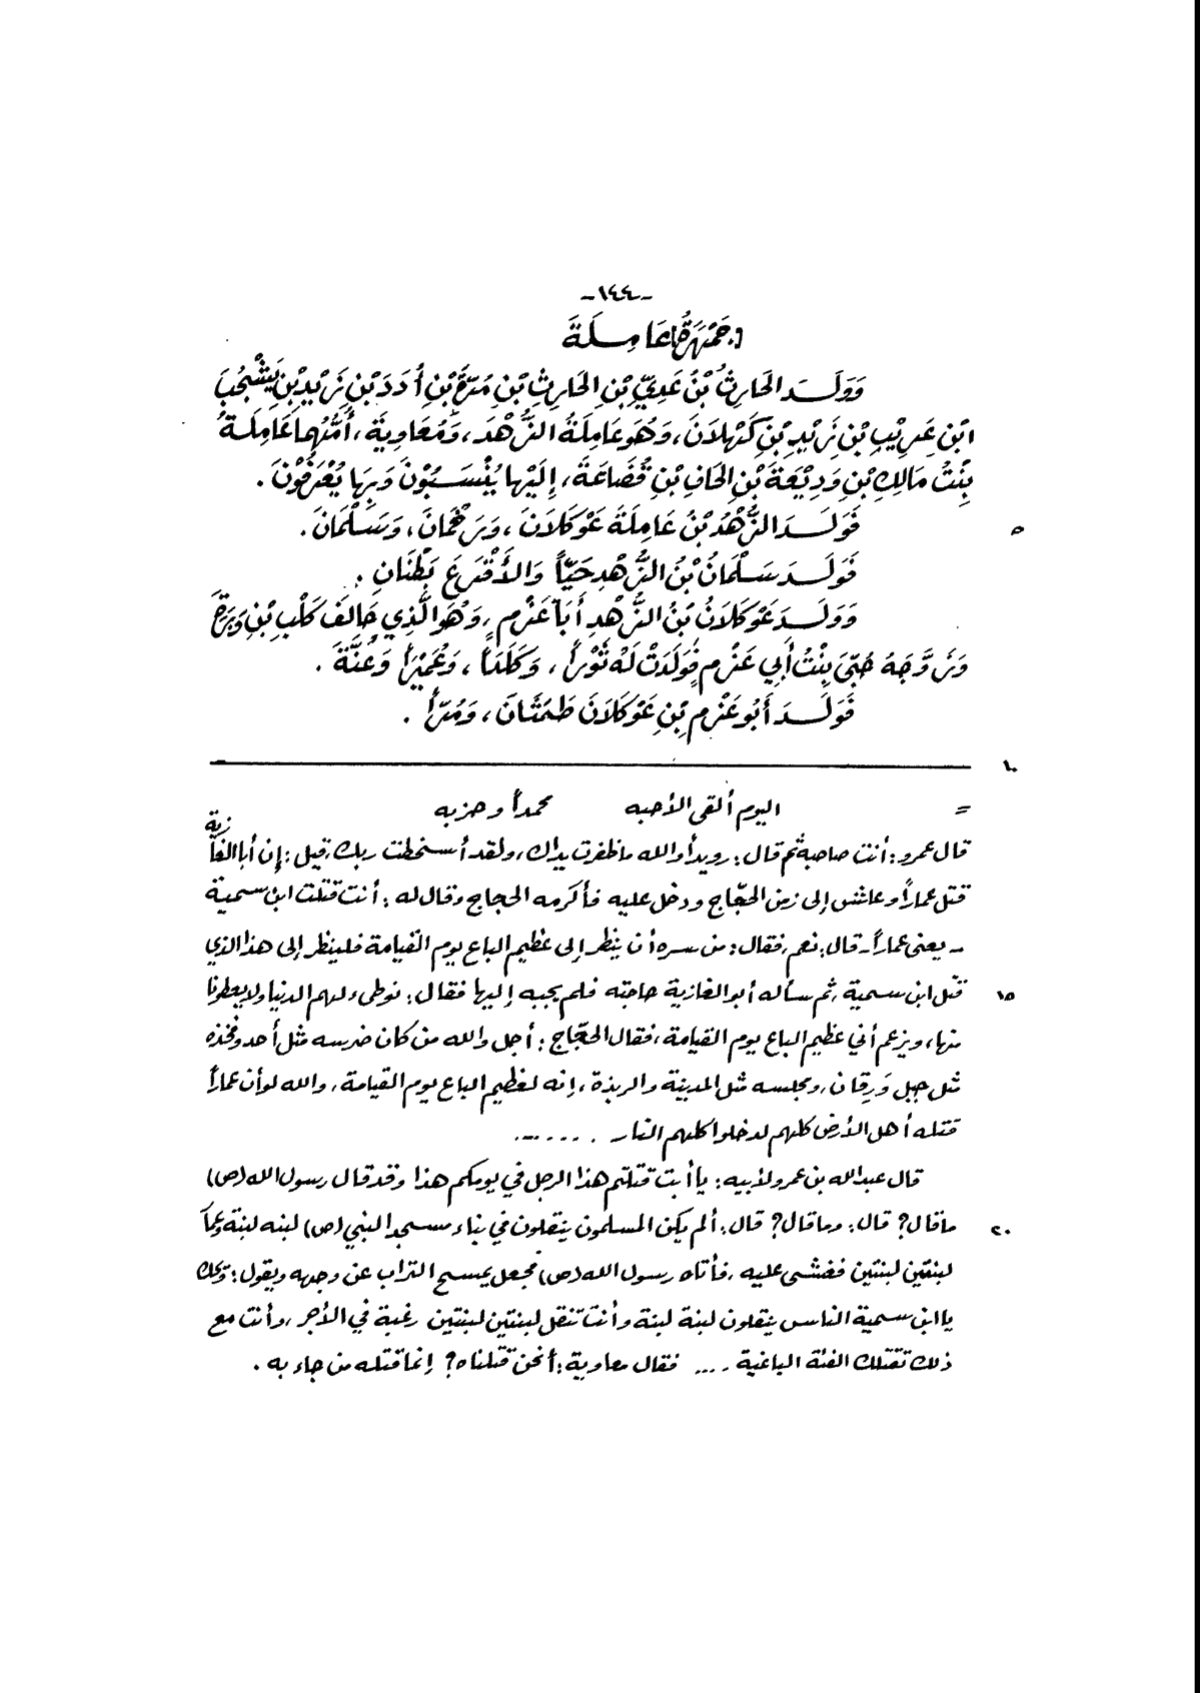 -١٤٤-
١. جَمْهَرَةُ عَامِلَةَ
وَوَلَدَ الحَارِثُ بْنُ عَدِيِّ بْنِ الحَارِثِ بْنِ مُرَّةَ بْنِ أُدَدَ بْنِ زَيْدِ بْنِ يَشْجُبَ
ابْنِ عَرِيْبِ بْنِ زَيْدِ بْنِ كَهْلَانَ، وَهُوَ عَامِلَةُ الزُّهْدَ، وَمُعَاوِيَةَ، أُمُّهُمَا عَامِلَةُ
بِنْتُ مَالِكِ بْنِ وَدِيْعَةَ بْنِ الحَافِ بْنِ قُضَاعَةَ، إِلَيْهَا يُنْسَبُوْنَ وَبِهَا يُعْرَفُوْنَ.
فَوَلَدَ الزُّهْدُ بْنُ عَامِلَةَ عَوْكَلَانَ، وَرَخْمَانَ، وَسَلْمَانَ.
٥
فَوَلَدَ سَلْمَانُ بْنُ الزُّهْدِ حَيّاً وَالأَقْرَعَ بَطْنَانِ.
وَوَلَدَ عَوْكَلَانُ بْنُ الزُّهْدِ أَبَا عَزْمٍ، وَهُوَ الَّذِي حَالَفَ كَلْبَ بْنِ وَبَرَةَ
وَتَزَوَّجَهُ حُبَّى بِنْتُ أَبِي عَزْمٍ فَوَلَدَتْ لَهُ ثَوْراً، وَكَلَداً، وَعُمَيْراً وَعُنَّةَ.
فَوَلَدَ أَبُو عَزْمِ بْنِ عَوْكَلَانَ طَمَثَانَ، وَمُرّاً.
١٠
= اليوم ألقى الأحبه محمداً وحزبه
قال عمرو: أنت صاحبه ثم قال: رويداً والله ما ظفرت يداك، ولقد أسخطت ربك، قيل: إن أبا الغازية
قتل عماراً وعاش إلى زمن الحجّاج ودخل عليه فأكرمه الحجاج وقال له: أنت قتلت ابن سمية
- يعني عماراً- قال: نعم، فقال: من سره أن ينظر إلى عظيم الباع يوم القيامة فلينظر إلى هذا الذي
قتل ابن سمية، ثم سأله أبو الغازية حاجته فلم يجبه إليها فقال: نوطىء لهم الدنيا ولا يعطونا
١٥
منها، ويزعم أني عظيم الباع يوم القيامة، فقال الحجّاج: أجل والله من كان ضرسه مثل أحد وفخذه
مثل جبل وَرِقان، ومجلسه مثل المدينة والربذة، إنه لعظيم الباع يوم القيامة، والله لو أن عماراً
قتله أهل الأرض كلهم لدخلوا كلهم النار ......
قال عبدالله بن عمرو لأبيه: يا أبت قتلتم هذا الرجل في يومكم هذا وقد قال رسول الله (ص)
ما قال؟ قال: وما قال؟ قال: ألم يكن المسلمون ينقلون في بناء مسجد النبي (ص) لبنه لبنة وعمار
٢٠
لبنتين لبنتين فغشي عليه، فأتاه رسول الله (ص) فجعل يمسح التراب عن وجهه ويقول: ويحك
يا ابن سمية الناس ينقلون لبنة لبنة وأنت تنقل لبنتين لبنتين رغبة في الأجر، وأنت مع
ذلك تقتلك الفئة الباغية .... فقال معاوية: أنحن قتلناه؟ إنما قتله من جاء به.